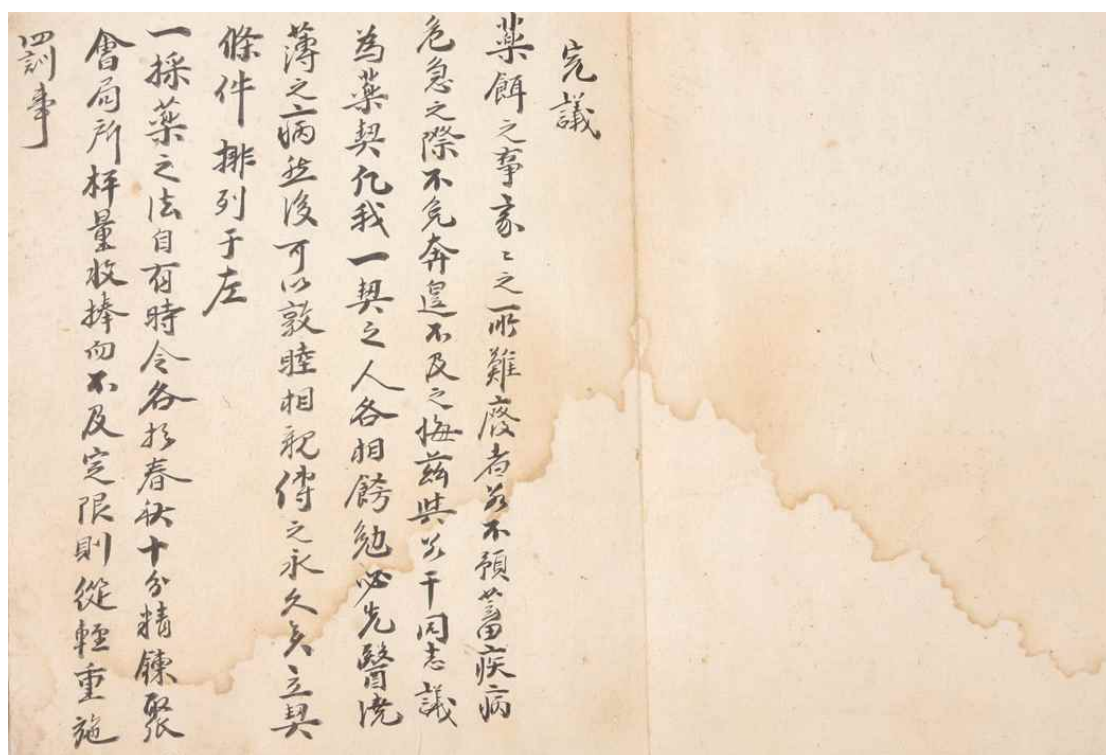 完議
藥餌之事家〻之所難廢者若不預蓄疾病
危急之際不免奔遑不及之悔茲與若干同志議
為藥契凡我一契之人各相飭勉必先醫澆
薄之病然後可以敦睦相親傳之永久矣立契
條件排列于左
一採藥之法自有時令各於春秋十分精鍊聚
會局所枰量收捧而不及定限則從輕重施
罰事